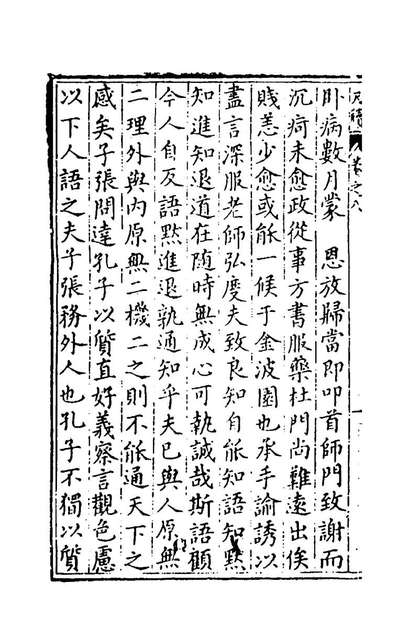 卷之八
卧病數月蒙　恩放歸當即叩首師門致謝而
沉疴未愈政從事方書服藥杜門尚難遠出俟
賤恙少愈或能一候于金波園也承手諭誘以
盡言深服老師弘度夫致良知自能知語知默
知進知退道在随時無成心可執誠哉斯語顧
今人自反語默進退孰通知乎夫已與人原無
二理外與内原無二機二之則不能通天下之
感矣子張問達孔子以質直好義察言觀色慮
以下人語之夫子張務外人也孔子不獨以質